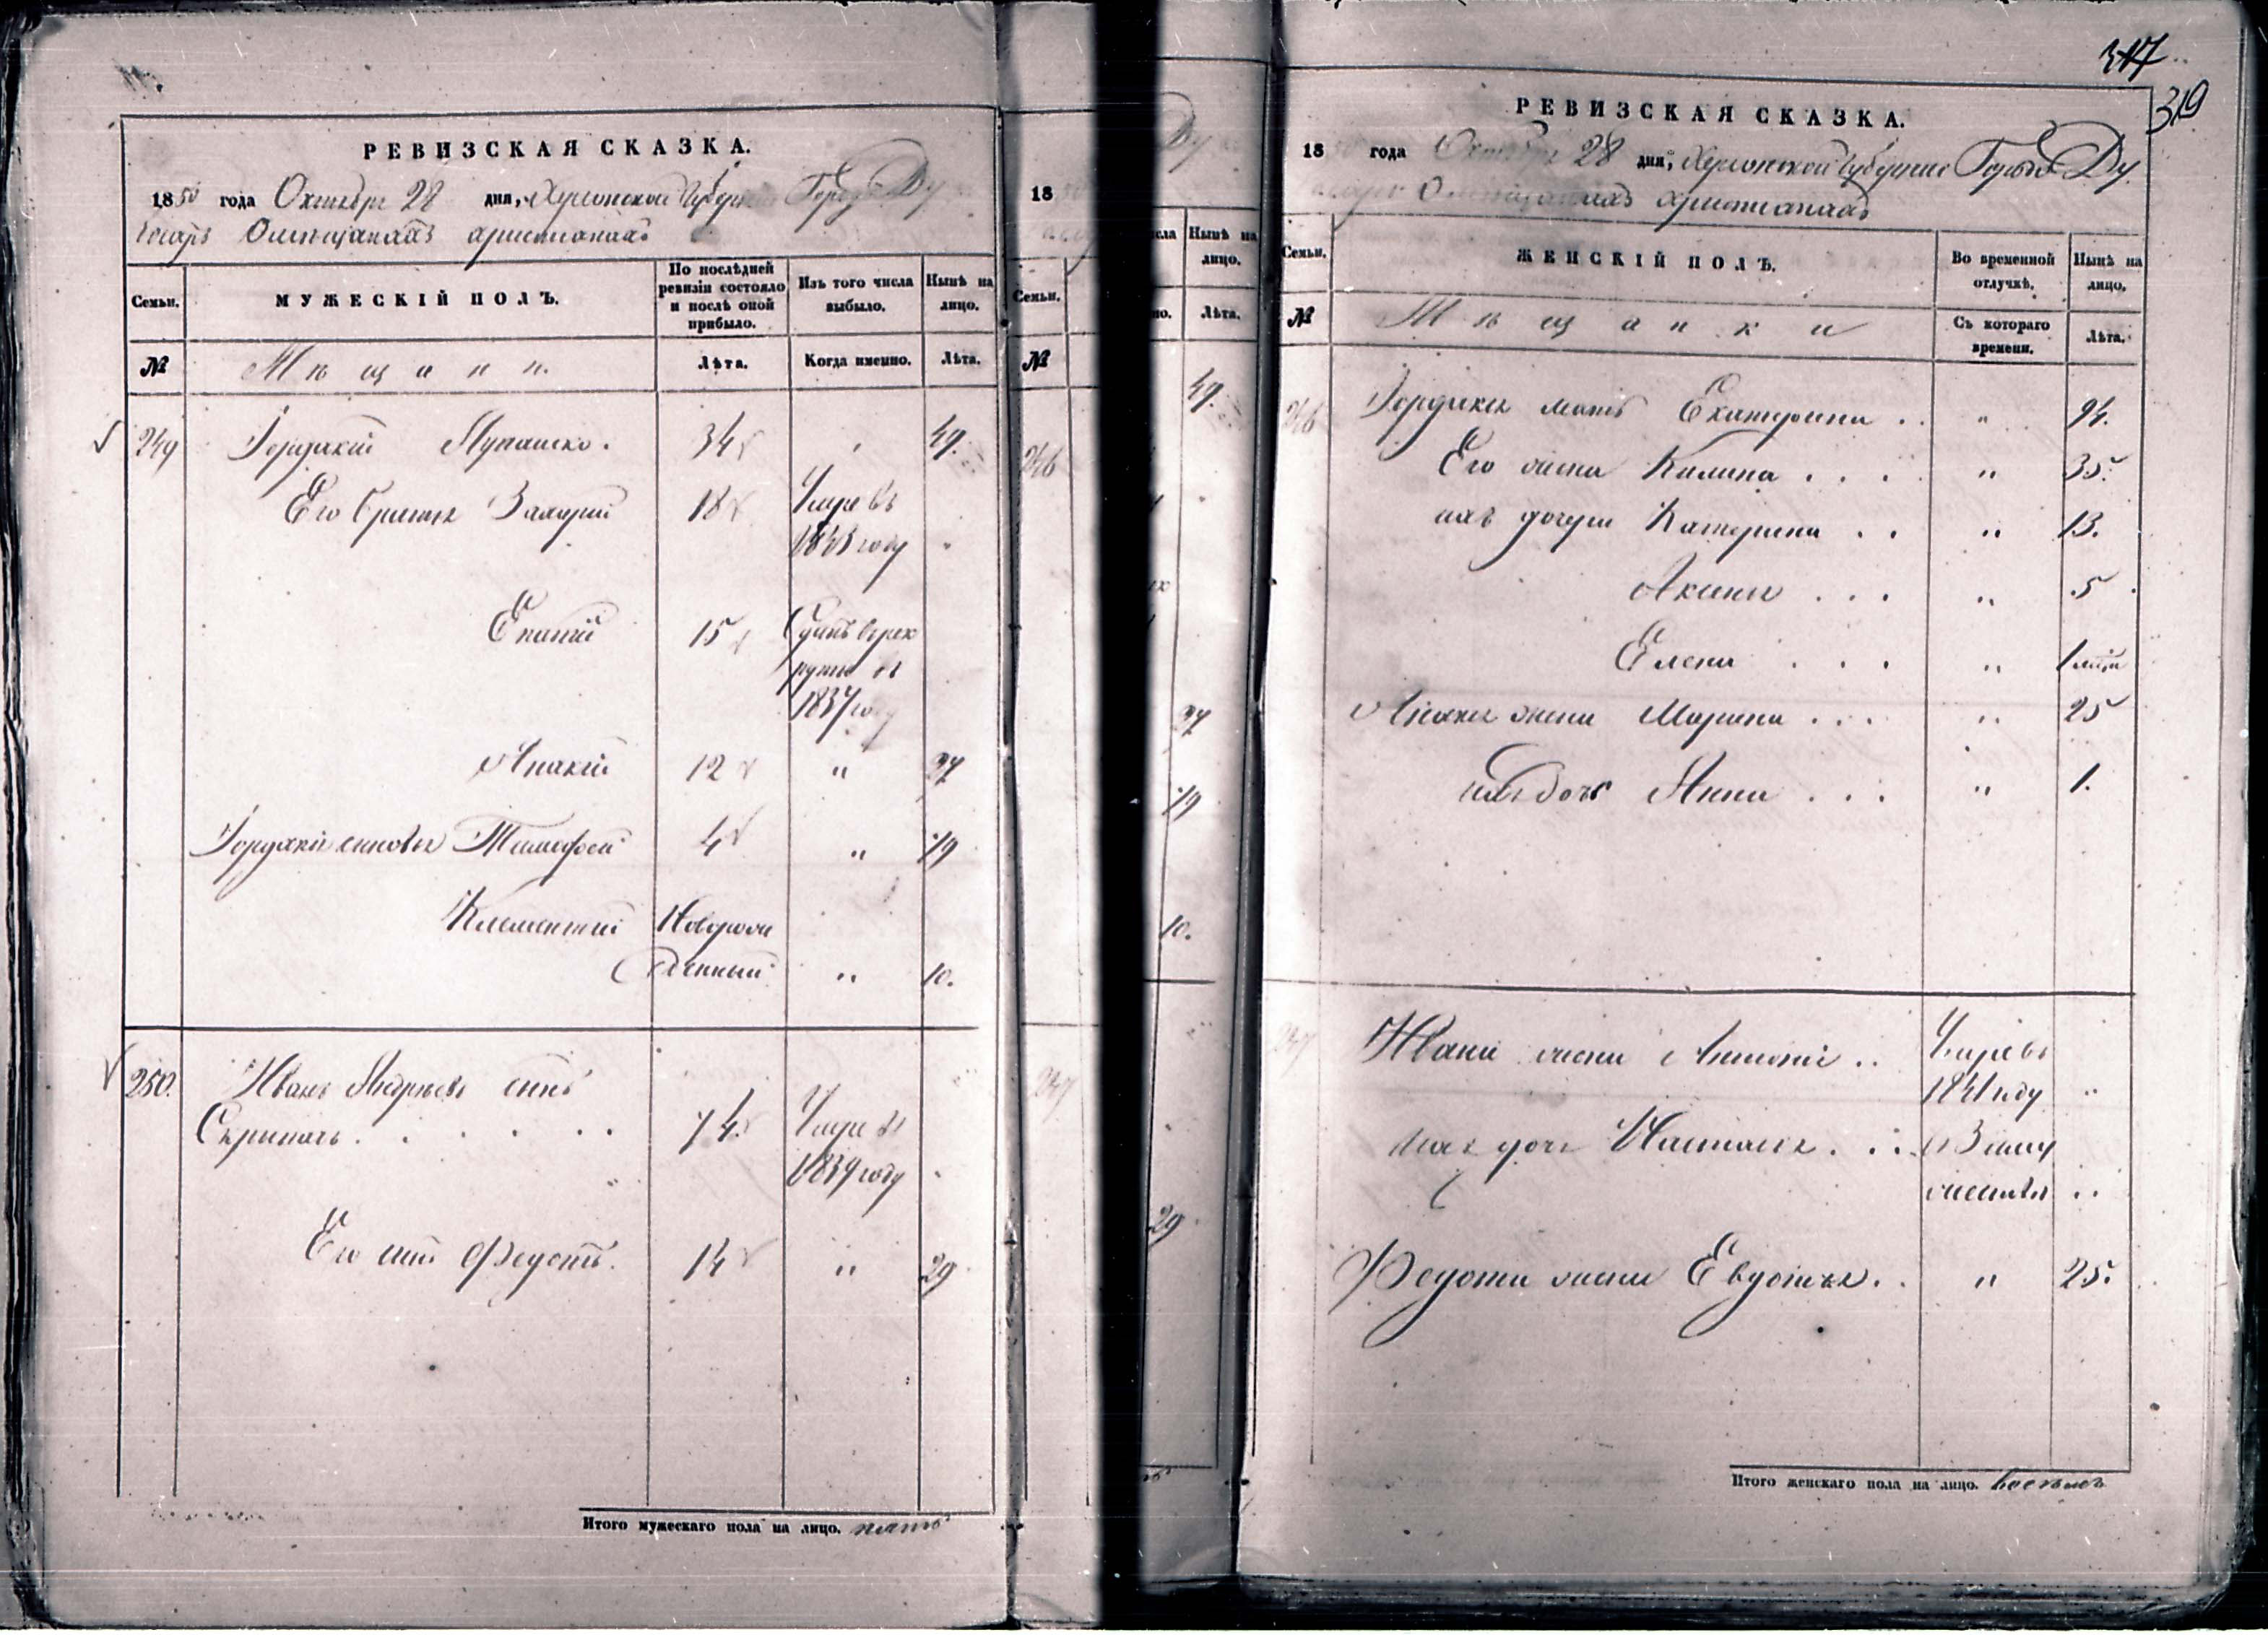 РЕВИЗСКАЯ СКАЗКА.
1850 года Октября 28 дня, Херсонской Губернии Города Ду
босаръ Омѣщанахъ християнахъ
Семьи. МУЖЕСКІЙ ПОЛЪ. По послѣдней ревизіи состояло и послѣ оной прибыло. Изъ того числа выбыло. Нынѣ на лицо.
№ Мѣщани. Лѣта. Когда именно. Лѣта.
249 Іордакій Лупашко. 34 " 49.
Его братья Захарій 18 Умре въ
1843 году "
Епатій 15 Сданъ врек
руты въ
1837 году
Анакій 12 " 27
Іордакія сыновья Тимофей 4 " 19
Климентий Новорож
денный " 10.
250. Иванъ Андреевъ сынъ
Скрипачъ . . . . . 74. Умре въ
1839 году "
Его сынъ Федотъ. 14 " 29
Итого мужескаго пола на лицо. пять
18
Семьи.
№
246
247
Ду
Нынѣ на лицо.
Лѣта.
49.
27
19
10.
29.
317
319
РЕВИЗСКАЯ СКАЗКА.
18 года Октября 28 дня, Херсонской Губернии Города Ду
босаръ Омѣщанахъ християнахъ
Семьи. ЖЕНСКІЙ ПОЛЪ. Во временной отлучкѣ. Нынѣ на лицо.
№ Мѣщанки Съ котораго времени. Лѣта.
246 Іордакія мать Екатерина . . " 94.
Его жена Калина . . . . " 35.
ихъ дочери Катерина . . " 13.
Аксинья . . . " 5
Елена . . . " 1
Анакія жена Марина . . . " 25
ихъ дочь Анна . . . " 1.
247 Ивана жена Антонія . . Умре въ
1841 году "
ихъ дочь Настасья . . . В заму
жествѣ "
Федота жена Евдотья . . " 25.
Итого женскаго пола на лицо. восемь